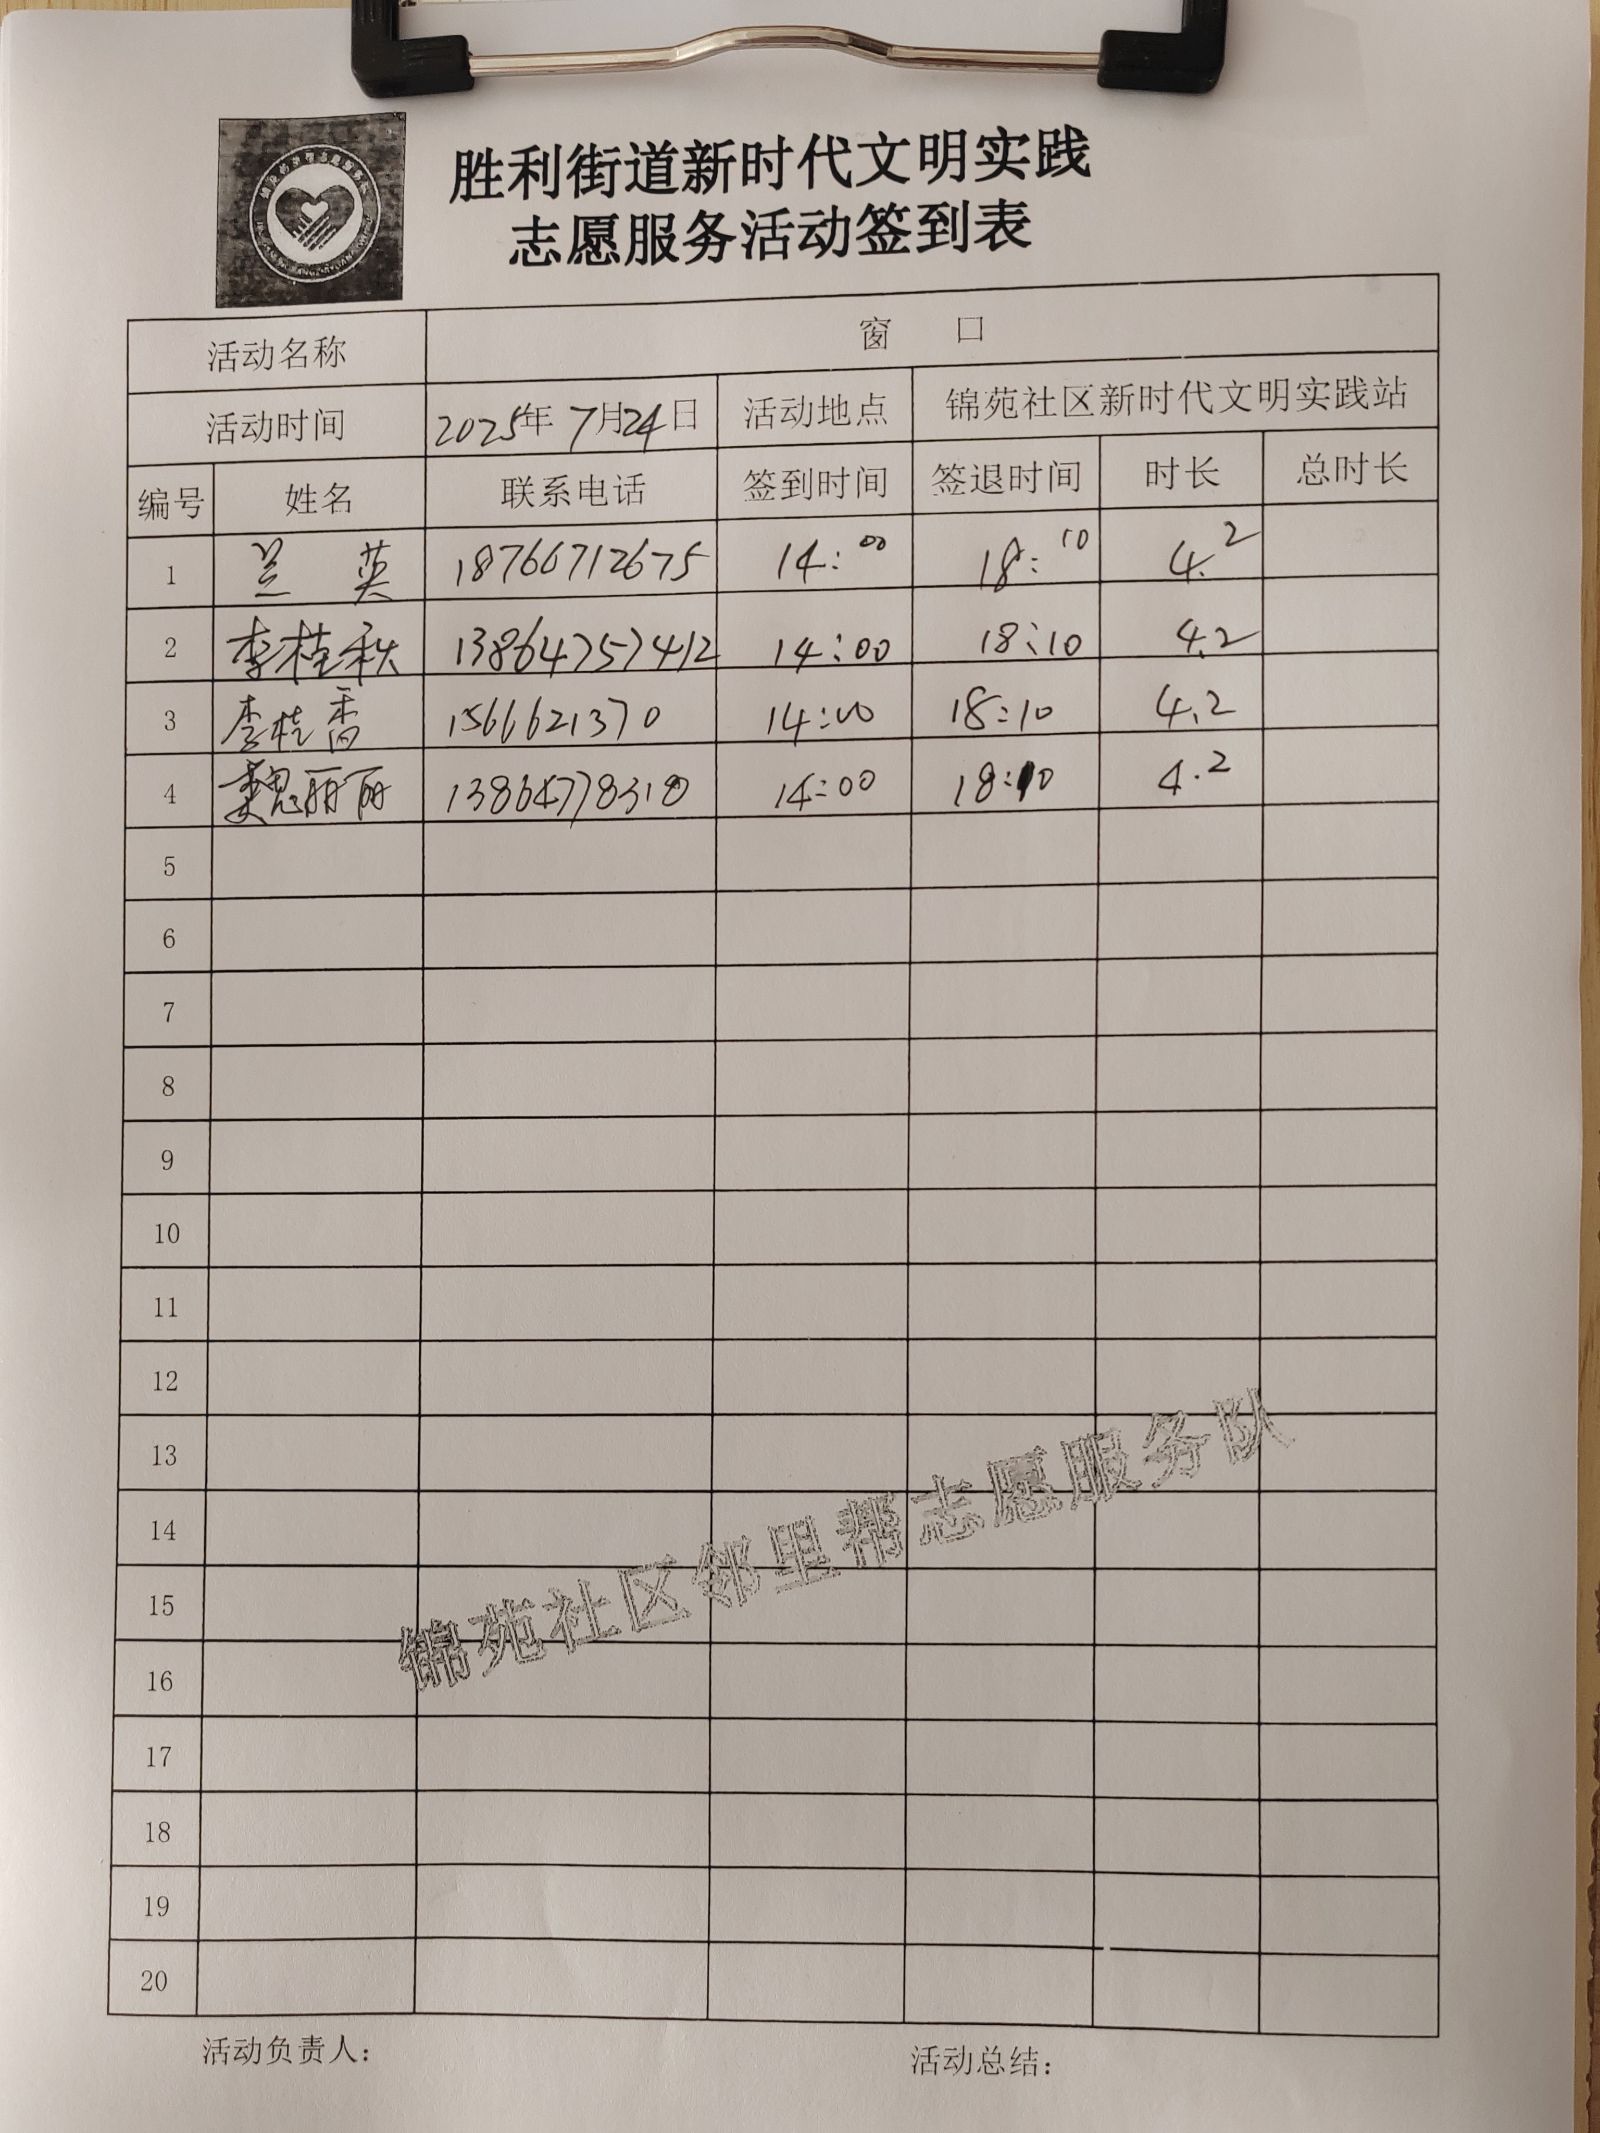 胜利街道新时代文明实践
志愿服务活动签到表
活动名称 窗 口
活动时间 2025年 7月24日 活动地点 锦苑社区新时代文明实践站
编号 姓名 联系电话 签到时间 签退时间 时长 总时长
1 兰 英 18766712675 14:00 18:10 4.2
2 李桂秋 13864757412 14:00 18:10 4.2
3 李桂香 1566621370 14:00 18:10 4.2
4 魏丽丽 13864778318 14:00 18:10 4.2
5
6
7
8
9
10
11
12
13
14
15
16
17
18
19
20
锦苑社区邻里帮志愿服务队
活动负责人:
活动总结: